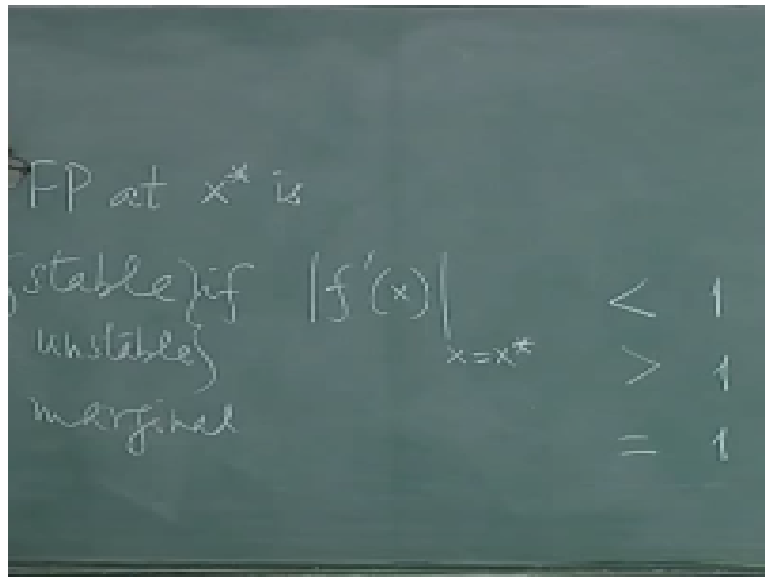 FP at x* is
{stable} if |f'(x)| x=x* < 1
unstable} > 1
marginal = 1